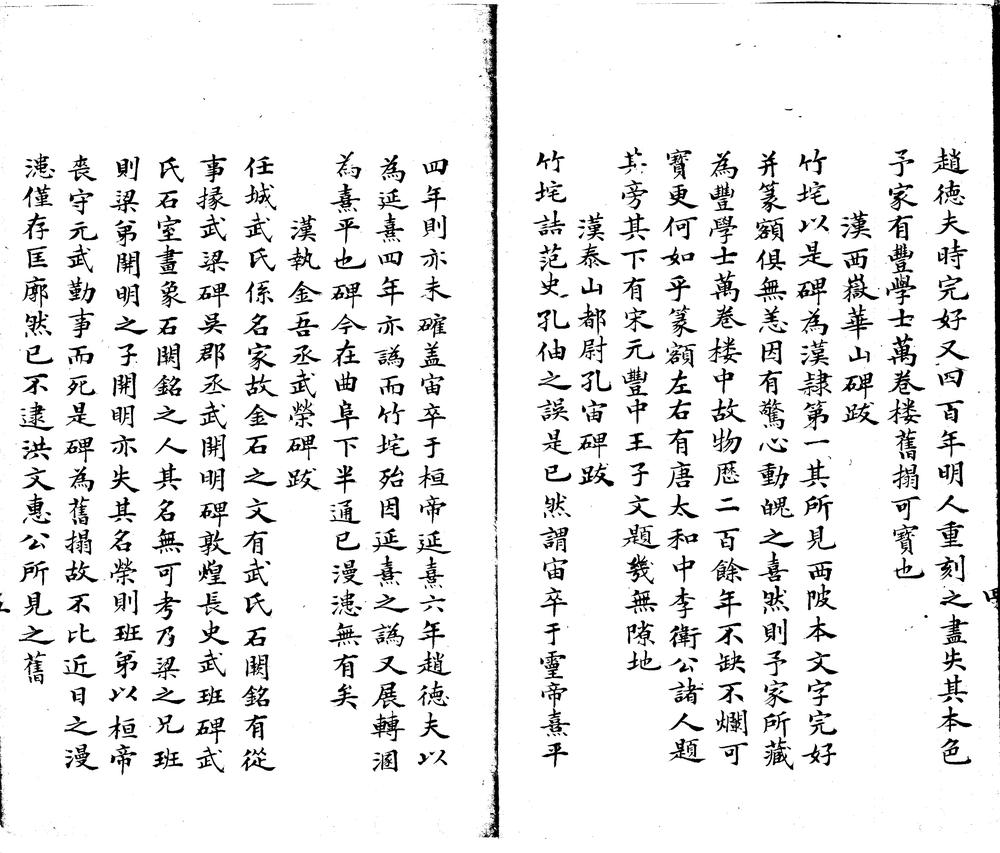 趙德夫時完好又四百年明人重刻之盡失其本色
予家有豐學士萬卷楼舊搨可寶也
漢西嶽華山碑跋
竹垞以是碑為漢隸第一其所見西陂本文字完好
并篆額俱無恙因有驚心動魄之喜然則予家所藏
為豐學士萬卷楼中故物歴二百餘年不缺不爛可
寶更何如乎篆額左右有唐太和中李衛公諸人題
其旁其下有宋元豐中王子文題幾無隙地
漢泰山都尉孔宙碑跋
竹垞詰范史孔伷之誤是已然謂宙卒于靈帝熹平
四年則亦未確盖宙卒于桓帝延熹六年趙德夫以
為延熹四年亦譌而竹垞殆因延熹之譌又展轉溷
為熹平也碑今在曲阜下半通已漫漶無有矣
漢執金吾丞武榮碑跋
任城武氏係名家故金石之文有武氏石闕銘有從
事掾武梁碑吳郡丞武開明碑敦煌長史武班碑武
氏石室畫象石闕銘之人其名無可考乃梁之兄班
則梁第開明之子開明亦失其名榮則班第以桓帝
喪守元武勤事而死是碑為舊搨故不比近日之漫
漶僅存匡廓然已不逮洪文惠公所見之舊